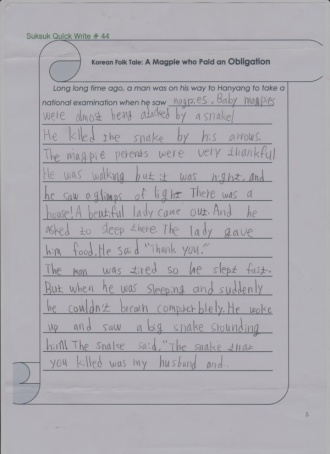 Suksuk Quick Write # 44
Korean Folk Tale: A Magpie who Paid an Obligation
Long long time ago, a man was on his way to Hanyang to take a
national examination when he saw magpies. Baby magpies
were almost being atacked by a snake
He killed the snake by his arrows.
The magpie parents were very thankful
He was walking but it was night. And
he saw a glimps of light There was a
house! A beutiful lady came out. And he
asked to sleep there. The lady gave
him food. He said "Thank you."
The man was tired so he slept fast.
But when he was sleeping and suddenly
he couldn't breath He woke
up and saw a big snake
him! The snake said, "The snake that
you killed was my husband and..